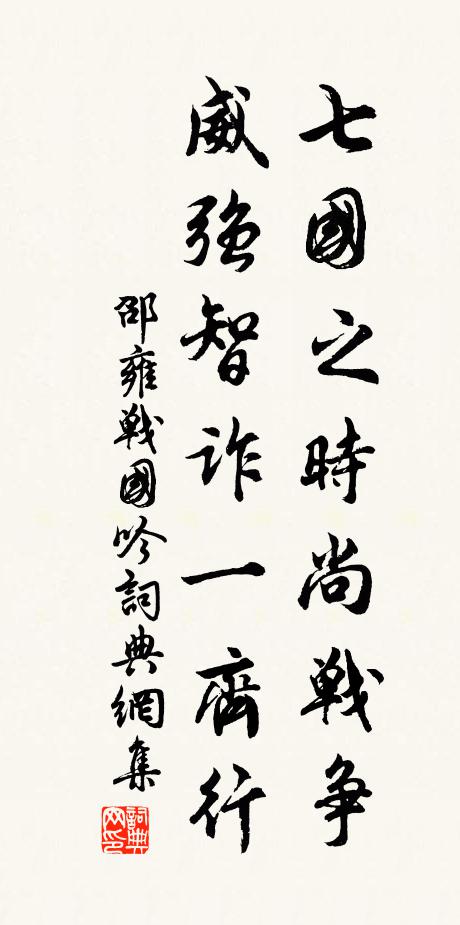 七國之時尚戰争
威强智詐一齊行
邵雍戰國吟詞典網集
詞典网印